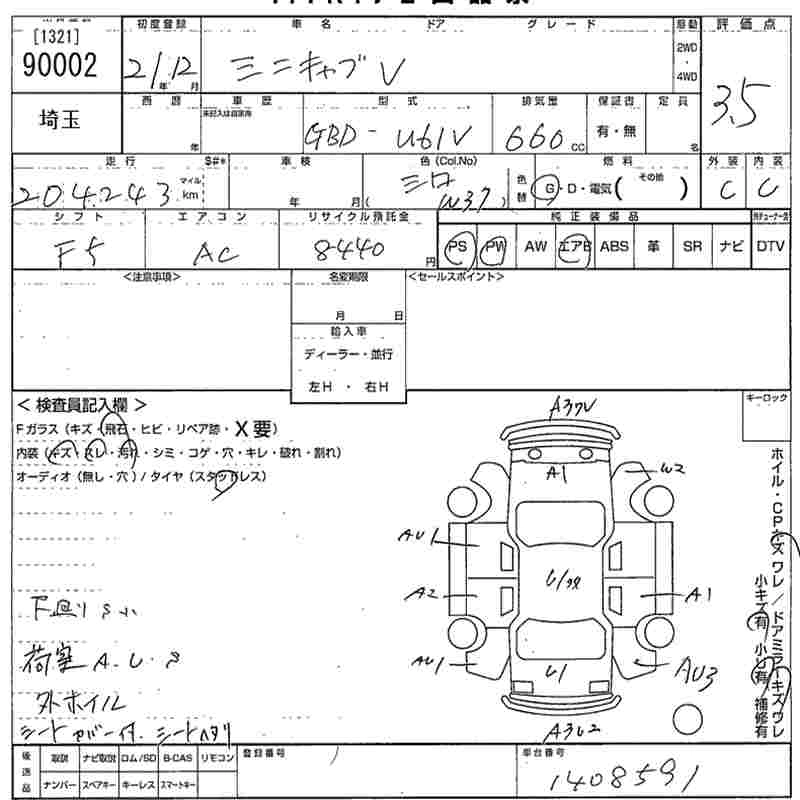 [1321]
90002
埼玉
初度登録 車名 ドア グレード 駆動 評価点
21年12月 ミニキャブV 2WD・4WD 3.5
西暦 車歴 型式 排気量 保証書 定員
年 未記入は自家用 GBD-U61V 660cc 有・無 名
走行 $#* 車検 色(Col.No) 燃料 外装 内装
204,243 マイル km 年 月( シロ W37 ) 色替 G・D・電気( その他 ) C C
シフト エアコン リサイクル預託金 純正装備品
F5 AC 8440円 PS PW AW エアB ABS 革 SR ナビ DTV
<注意事項> 名変期限 <セールスポイント>
月 日
輸入車
ディーラー・並行
左H ・ 右H
<検査員記入欄>
Fガラス(キズ・飛石・ヒビ・リペア跡・X要)
内装(キズ・スレ・汚れ・シミ・コゲ・穴・キレ・破れ・割れ)
オーディオ(無し・穴)/タイヤ(スタッドレス)
キーロック
ホイル・CPキズ ワレ/ドアミラーキズワレ
小キズ有 小U有 補修有
A1
W2
AU1
A2
A1
AU1
U1
AU3
F廻りS小
荷室A.U.S
外ホイル
シートカバー付、シートヘタリ
後送品 取説 ナビ取説 ロム/SD B-CAS リモコン 登録番号 車台番号
ナンバー スペアキー キーレス スマートキー 1408591